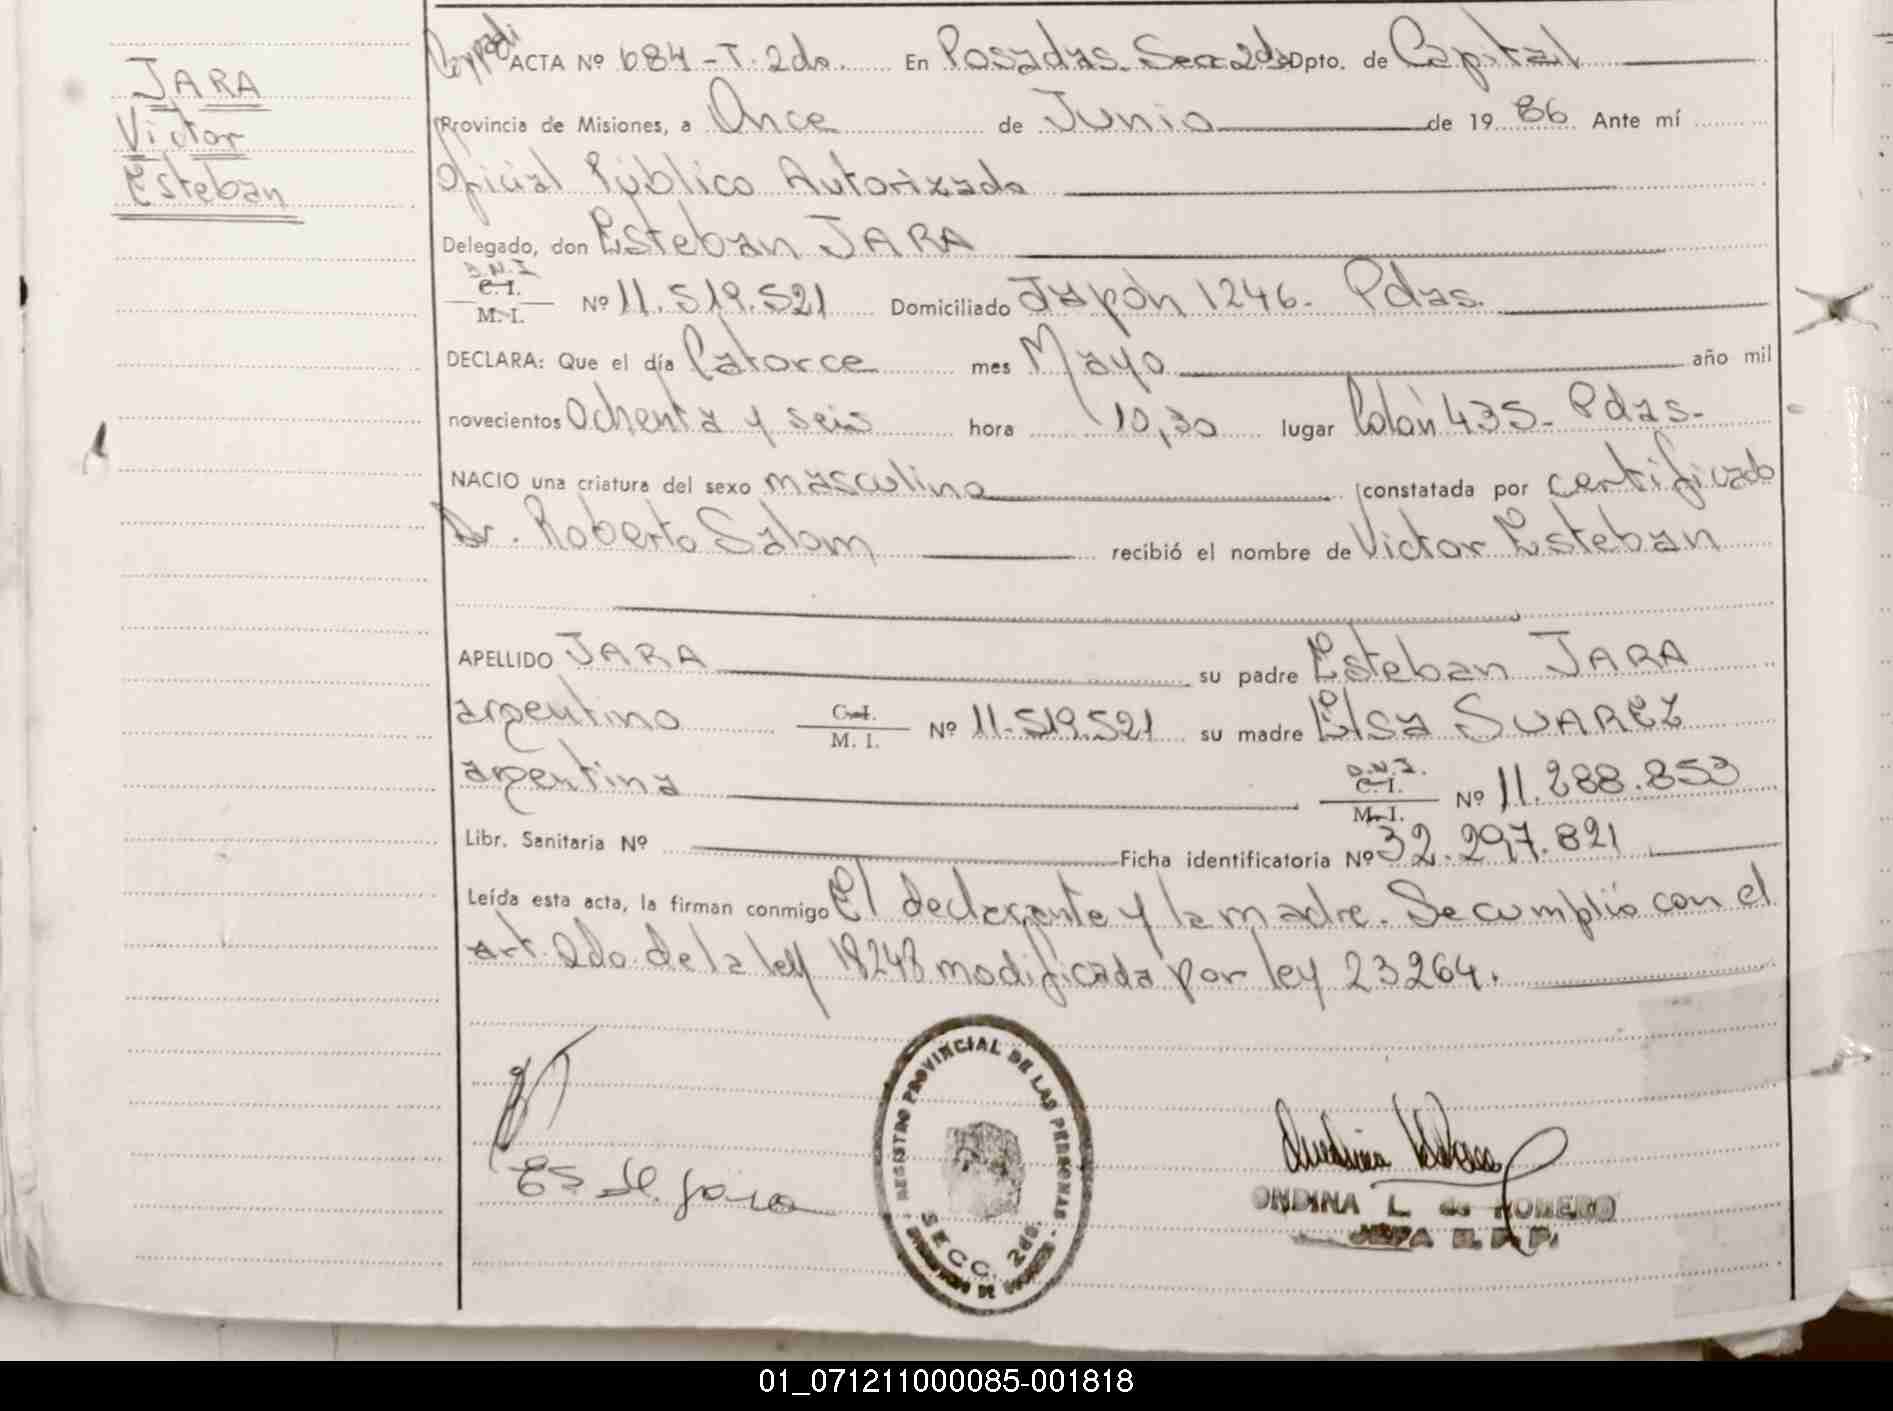 JARA
Victor
Esteban
ACTA Nº 684 - T. 2do. En Posadas. Secc 2da Dpto. de Capital
Provincia de Misiones, a Once de Junio de 19 86 Ante mí
Oficial Público Autorizado
Delegado, don Esteban JARA
D.N.I.
C. I.
M. I.
Nº 11.519.521 Domiciliado Japón 1246. Pdas.
DECLARA: Que el día Catorce mes Mayo año mil
novecientos Ochenta y seis hora 10,30 lugar Colón 435 - Pdas.
NACIO una criatura del sexo masculino constatada por certificado
Dr. Roberto Salom recibió el nombre de Victor Esteban
APELLIDO JARA su padre Esteban JARA
argentino C. I. M. I. Nº 11.519.521 su madre Elsa SUAREZ
argentina D.N.I. C. I. M. I. Nº 11.288.853
Libr. Sanitaria Nº Ficha identificatoria Nº 32.297.821
Leída esta acta, la firman conmigo El declarante y la madre. Se cumplió con el
art. 2do de la ley 18248 modificada por ley 23264.
REGISTRO PROVINCIAL DE LAS PERSONAS
SECC. 2da.
ONDINA L. de ROMERO
JEFA R. P. P.
01_071211000085-001818